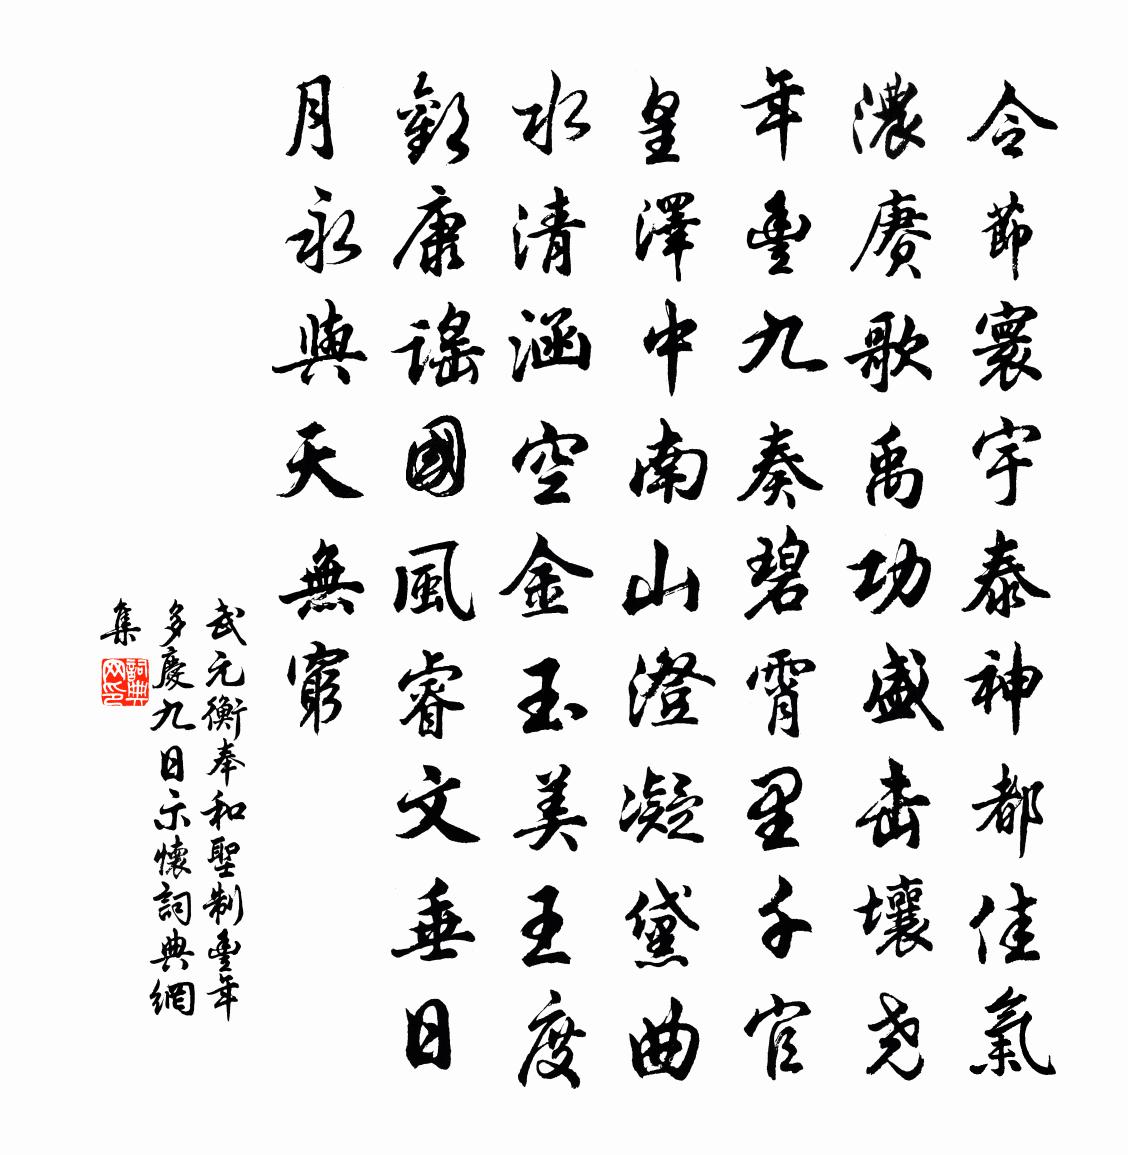 令節寰宇泰神都佳氣
濃賡歌禹功盛击壤尧
年豐九奏碧霄里千官
皇澤中南山澄凝黛曲
水清涵空金玉美王度
歡康謠國風睿文垂日
月永與天無窮
武元衡奉和聖制豐年
多慶九日示懷詞典網
集
詞典网